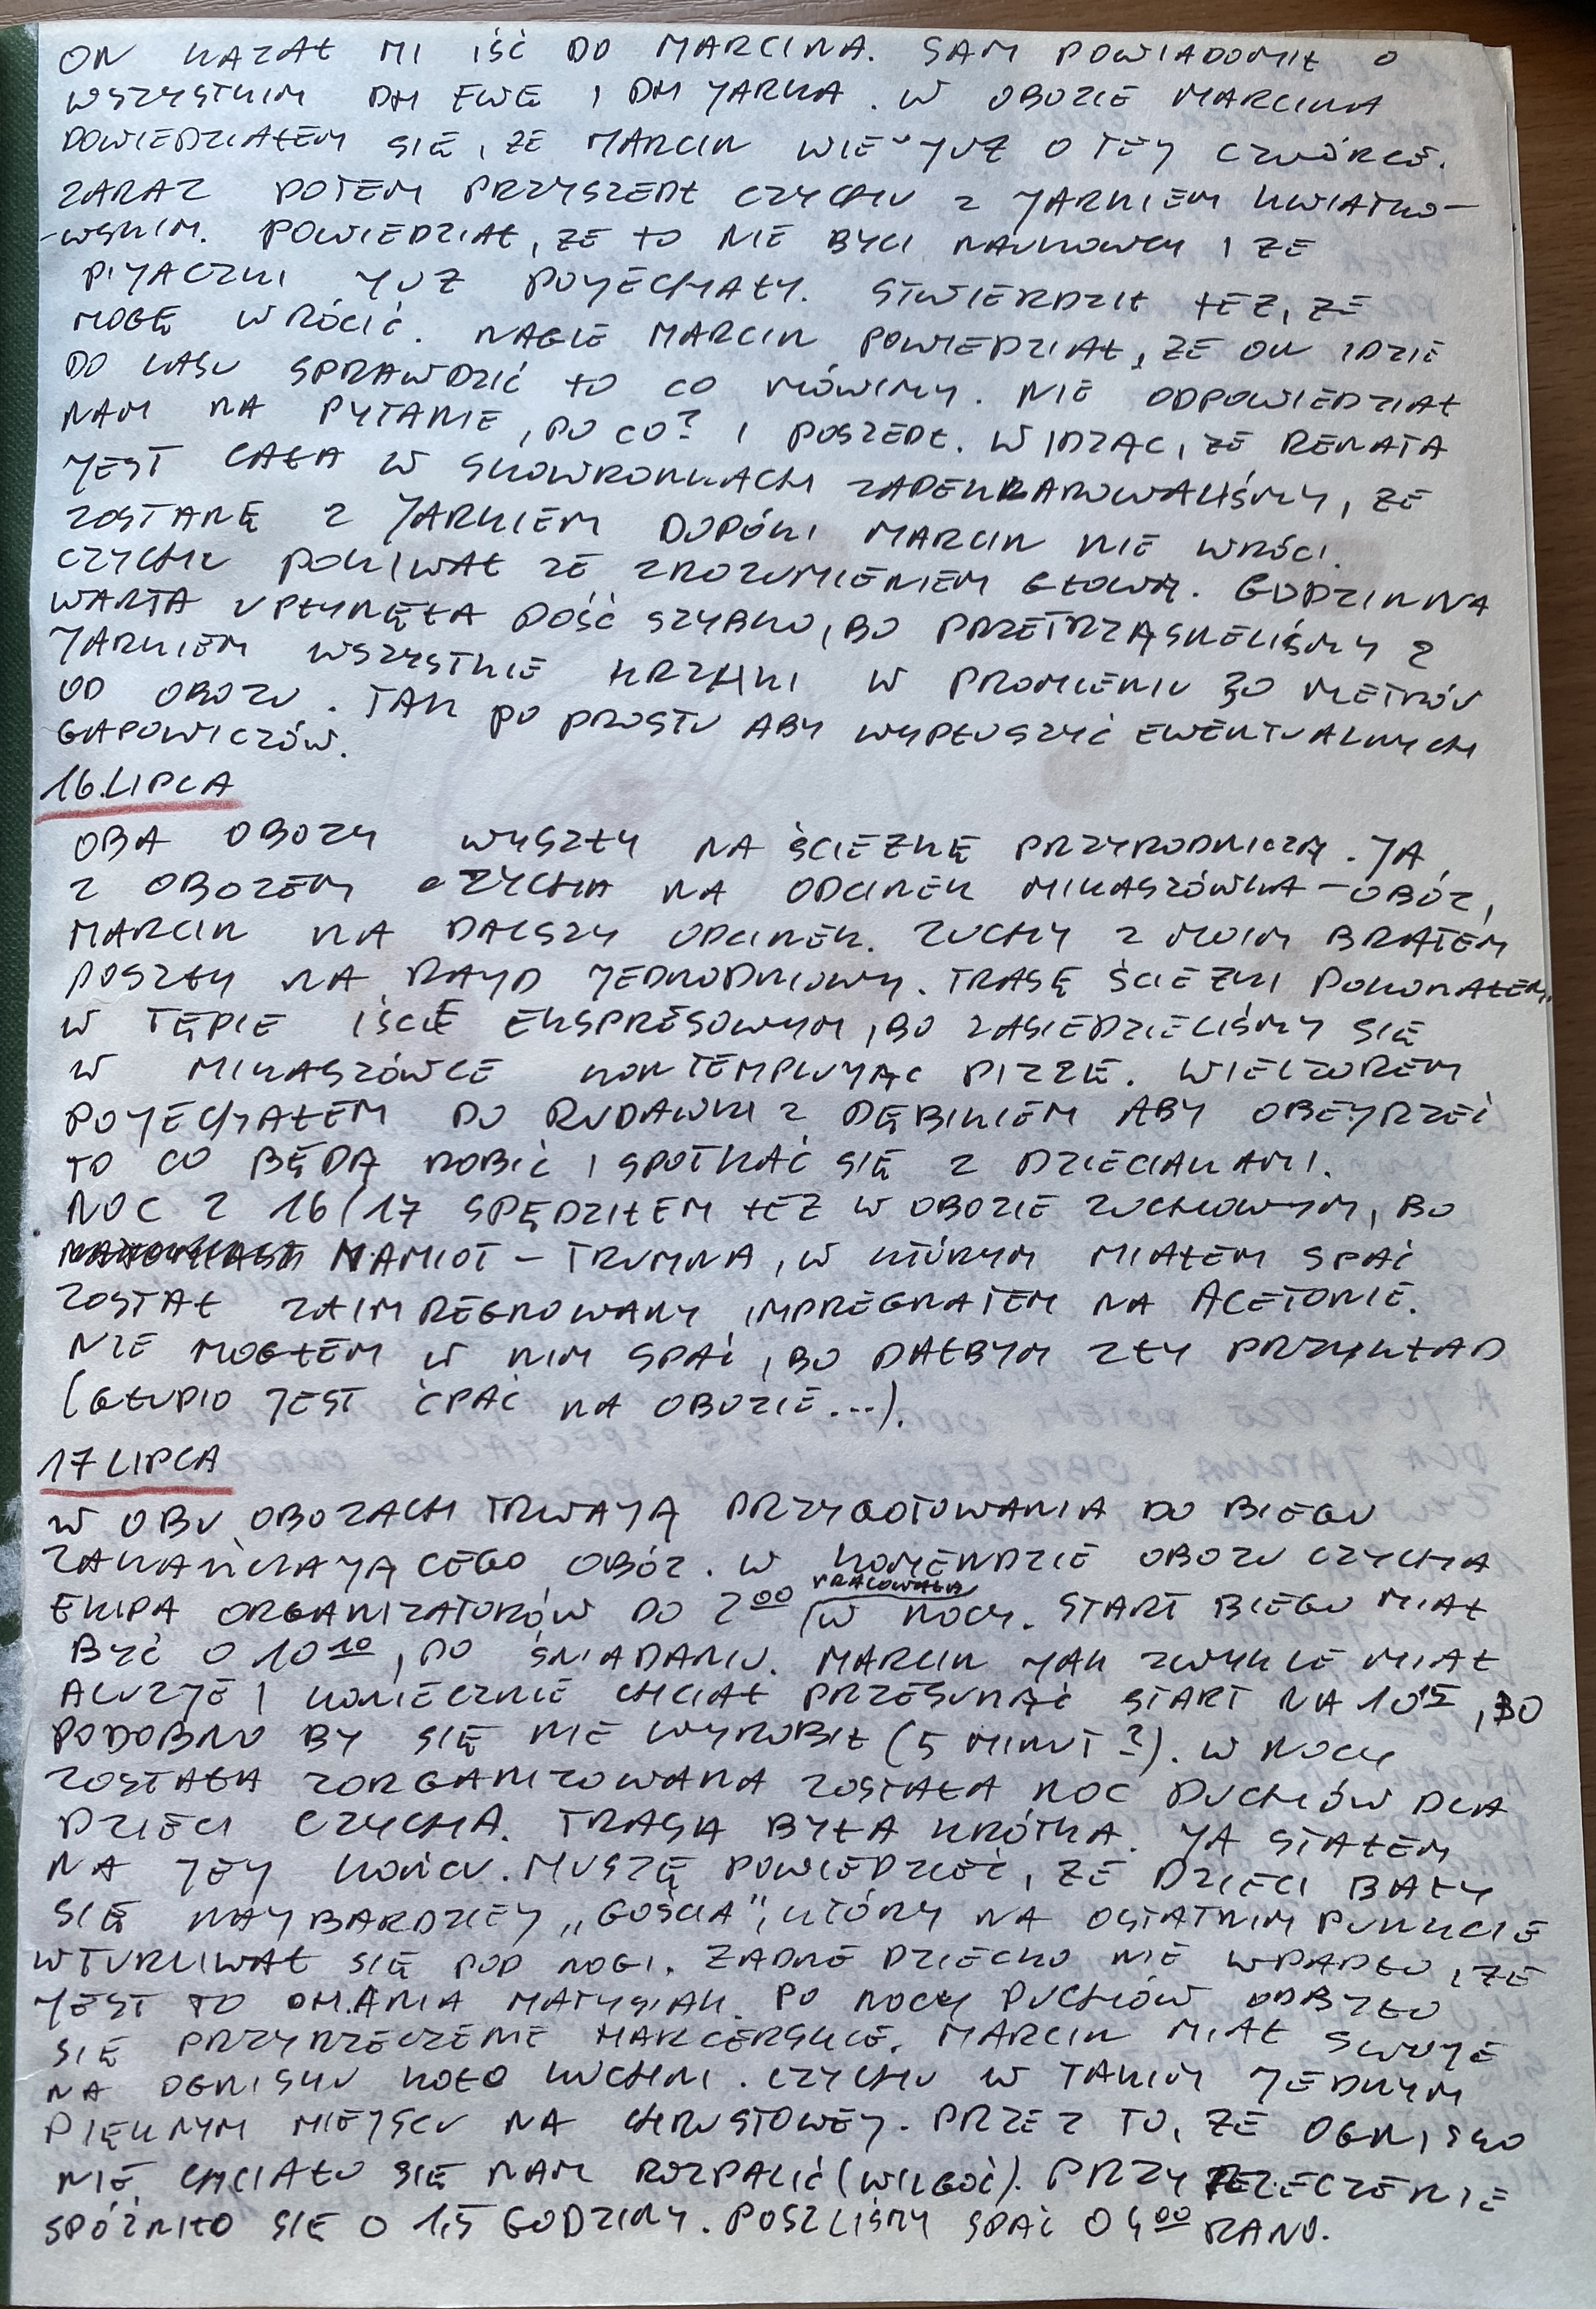 ON KAZAŁ MI IŚĆ DO MARCINA. SAM POWIADOMIŁ O
WSZYSTKIM DH EWĘ I DH JARKA. W OBOZIE MARCINA
DOWIEDZIAŁEM SIĘ, ŻE MARCIN WIE JUŻ O TEJ CZWÓRCE.
ZARAZ POTEM PRZYSZEDŁ CZYCHU Z JARKIEM KWIATKO-
-WSKIM. POWIEDZIAŁ, ŻE TO NIE BYLI NAUKOWCY I ŻE
PIJACZKI JUŻ POJECHAŁY. STWIERDZIŁ TEŻ, ŻE
MOGĘ WRÓCIĆ. NAGLE MARCIN POWIEDZIAŁ, ŻE ON IDZIE
DO LASU SPRAWDZIĆ TO CO MÓWIMY. NIE ODPOWIEDZIAŁ
NAM NA PYTANIE, PO CO? I POSZEDŁ. WIDZĄC, ŻE RENATA
JEST CAŁA W SKOWRONKACH ZADEKLAROWALIŚMY, ŻE
ZOSTANĘ Z JARKIEM DOPÓKI MARCIN NIE WRÓCI.
CZYCHU POKIWAŁ ZE ZROZUMIENIEM GŁOWĄ. GODZINNA
WARTA UPŁYNĘŁA DOŚĆ SZYBKO, BO PRZETRZĄSNELIŚMY Z
JARKIEM WSZYSTKIE KRZAKI W PROMIENIU 30 METRÓW
OD OBOZU. TAK PO PROSTU ABY WYPŁOSZYĆ EWENTUALNYCH
GAPOWICZÓW.
16.LIPCA
OBA OBOZY WYSZŁY NA ŚCIEŻKĘ PRZYRODNICZĄ. JA
Z OBOZEM CZYCHA NA ODCINEK MIKASZÓWKA-OBÓZ,
MARCIN NA DALSZY ODCINEK. ZUCHY Z MOIM BRATEM
POSZŁY NA RAJD JEDNODNIOWY. TRASĘ ŚCIEŻKI POKONAŁEM
W TĘPIE IŚCIE EKSPRESOWYM, BO ZASIEDZIELIŚMY SIĘ
W MIKASZÓWCE KONTEMPLUJĄC PIZZĘ. WIECZOREM
POJECHAŁEM DO RUDAWKI Z DĘBIKIEM ABY OBEJRZEĆ
TO CO BĘDĄ ROBIĆ I SPOTKAĆ SIĘ Z DZIECIAKAMI.
NOC Z 16/17 SPĘDZIŁEM TEŻ W OBOZIE ZUCHOWYM, BO
NAMIOT - TRUMNA, W KTÓRYM MIAŁEM SPAĆ
ZOSTAŁ ZAIMPREGNOWANY IMPREGNATEM NA ACETONIE.
NIE MOGŁEM W NIM SPAĆ, BO DAŁBYM ZŁY PRZYKŁAD
(GŁUPIO JEST ĆPAĆ NA OBOZIE...).
17 LIPCA
W OBU OBOZACH TRWAJĄ PRZYGOTOWANIA DO BIEGU
ZAKAŃCZAJĄCEGO OBÓZ. W KOMENDZIE OBOZU CZYCHA
EKIPA ORGANIZATORÓW DO 2⁰⁰ PRACOWAŁA W NOCY. START BIEGU MIAŁ
BYĆ O 10¹⁰, PO ŚNIADANIU. MARCIN JAK ZWYKLE MIAŁ
ALUZJE I KONIECZNIE CHCIAŁ PRZESUNĄĆ START NA 10¹⁵, BO
PODOBNO BY SIĘ NIE WYROBIŁ (5 MINUT?). W NOCY
ZOSTAŁA ZORGANIZOWANA ZOSTAŁA NOC DUCHÓW DLA
DZIECI CZYCHA. TRASA BYŁA KRÓTKA. JA STAŁEM
NA JEJ KOŃCU. MUSZĘ POWIEDZIEĆ, ŻE DZIECI BAŁY
SIĘ NAJBARDZIEJ „GOŚCIA", KTÓRY NA OSTATNIM PUNKCIE
WTURLIWAŁ SIĘ POD NOGI. ŻADNE DZIECKO NIE WPADŁO, ŻE
JEST TO DH. ANIA MATYSIAK. PO NOCY DUCHÓW ODBYŁO
SIĘ PRZYRZECZENIE HARCERSKIE. MARCIN MIAŁ SWOJE
NA OGNISKU KOŁO KUCHNI. CZYCHU W TAKIM JEDNYM
PIĘKNYM MIEJSCU NA CHRUSTOWEJ. PRZEZ TO, ŻE OGNISKO
NIE CHCIAŁO SIĘ NAM ROZPALIĆ (WILGOĆ). PRZYRZECZENIE
SPÓŹNIŁO SIĘ O 1,5 GODZINY. POSZLIŚMY SPAĆ O 4⁰⁰ RANO.